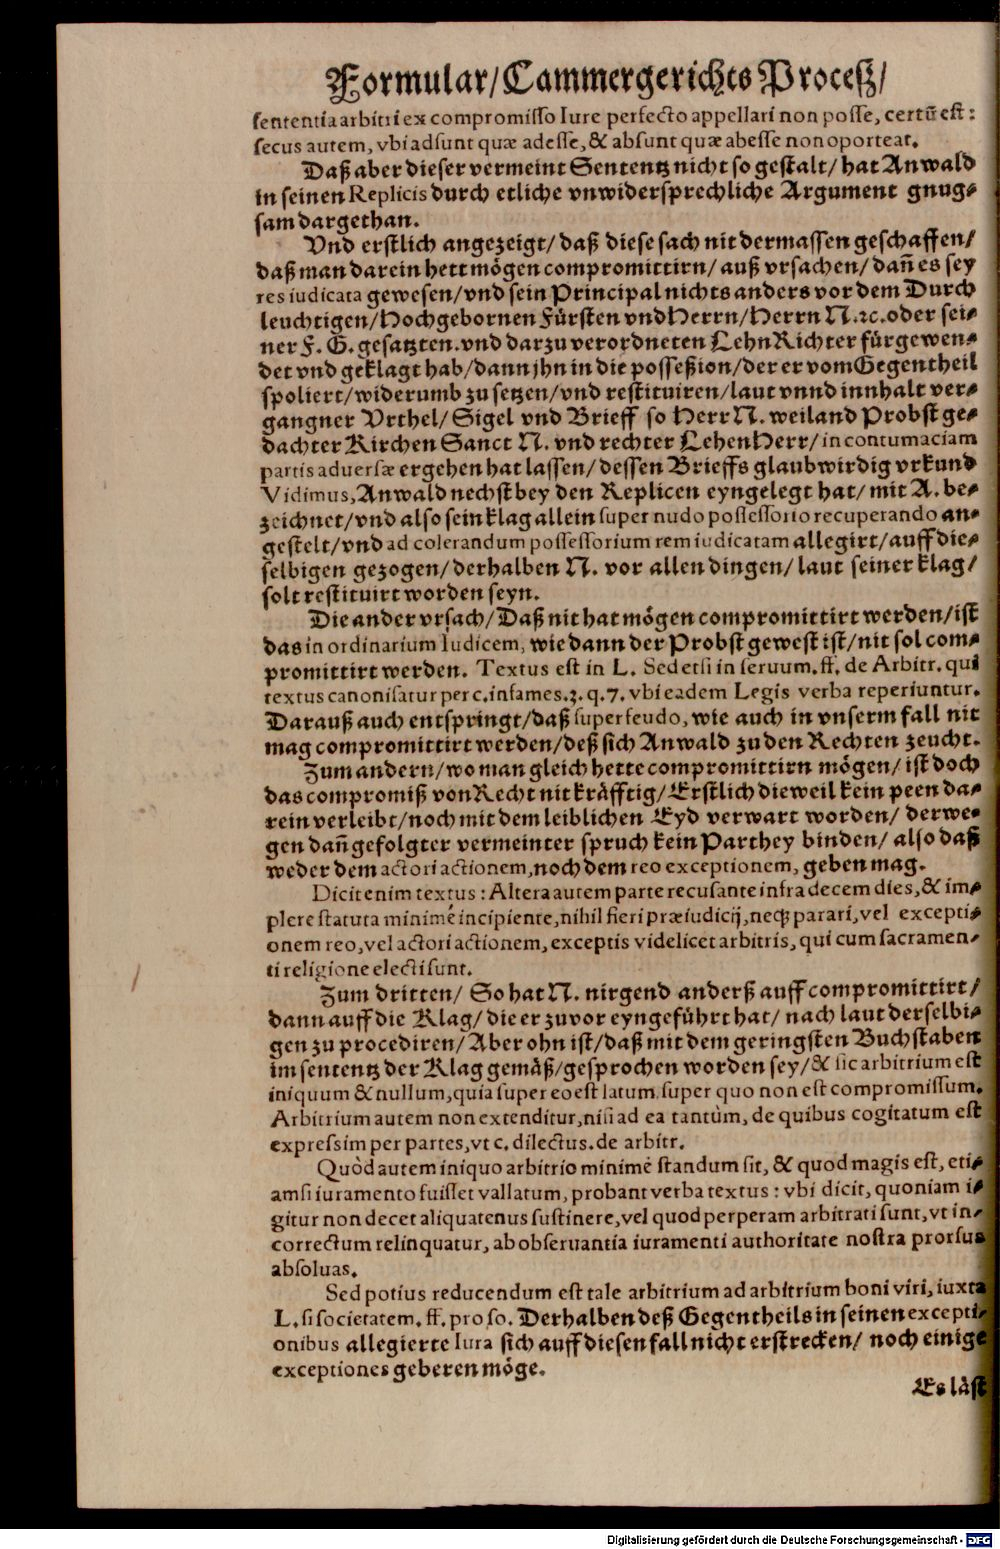 Formular/Cammergerichts Proceß/
sententia arbitri ex compromisso Iure perfecto appellari non posse, certũ est:
secus autem, vbi adsunt quæ adesse, & absunt quæ abesse non oporteat.
Daß aber dieser vermeint Sententz nicht so gestalt/ hat Anwald
in seinen Replicis durch etliche vnwidersprechliche Argument gnug⸗
sam dargethan.
Vnd erstlich angezeigt/ daß diese sach nit dermassen geschaffen/
daß man darein hett mögen compromittirn/ auß vrsachen/ dañ es sey
res iudicata gewesen/ vnd sein Principal nichts anders vor dem Durch
leuchtigen/ Hochgebornen Fürsten vnd Herrn/ Herrn N. ꝛc. oder sei⸗
ner F. G. gesatzten. vnd darzu verordneten LehnRichter fürgewen⸗
det vnd geklagt hab/ dann jhn in die posseßion/ der er vom Gegentheil
spoliert/ widerumb zu setzen/ vnd restituiren/ laut vnnd innhalt ver⸗
gangner Vrthel/ Sigel vnd Brieff so Herr N. weiland Probst ge⸗
dachter Kirchen Sanct N. vnd rechter LehenHerr/ in contumaciam
partis aduersæ ergehen hat lassen/ dessen Brieffs glaubwirdig vrkund
Vidimus, Anwald nechst bey den Replicen eyngelegt hat/ mit A. be⸗
zeichnet/ vnd also sein klag allein super nudo possessorio recuperando an⸗
gestelt/ vnd ad colerandum possessorium rem iudicatam allegirt/ auff die⸗
selbigen gezogen/ derhalben N. vor allen dingen/ laut seiner klag/
solt restituirt worden seyn.
Die ander vrsach/ Daß nit hat mögen compromittirt werden/ ist
das in ordinarium Iudicem, wie dann der Probst gewest ist/ nit sol com⸗
promittirt werden. Textus est in L. Sed etsi in seruum. ff. de Arbitr. qui
textus canonisatur per c. infames. 3. q. 7. vbi eadem Legis verba reperiuntur.
Darauß auch entspringt/ daß super feudo, wie auch in vnserm fall nit
mag compromittirt werden/ deß sich Anwald zu den Rechten zeucht.
Zum andern/ wo man gleich hette compromittirn mögen/ ist doch
das compromiß von Recht nit kräfftig/ Erstlich dieweil kein peen da⸗
rein verleibt/ noch mit dem leiblichen Eyd verwart worden/ derwe⸗
gen dañ gefolgter vermeinter spruch kein Parthey binden/ also daß
weder dem actori actionem, noch dem reo exceptionem, geben mag.
Dicit enim textus: Altera autem parte recusante infra decem dies, & im⸗
plere statuta minimè incipiente, nihil fieri præiudicij, neqꝫ parari, vel excepti⸗
onem reo, vel actori actionem, exceptis videlicet arbitris, qui cum sacramen⸗
ti religione electi sunt.
Zum dritten/ So hat N. nirgend anderß auff compromittirt/
dann auff die Klag/ die er zuvor eyngeführt hat/ nach laut derselbi⸗
gen zu procediren/ Aber ohn ist/ daß mit dem geringsten Buchstaben
im sententz der Klag gemäß/ gesprochen worden sey/ & sic arbitrium est
iniquum & nullum, quia super eo est latum super quo non est compromissum.
Arbitrium autem non extenditur, nisi ad ea tantùm, de quibus cogitatum est
expressim per partes, vt c. dilectus. de arbitr.
Quòd autem iniquo arbitrio minimè standum sit, & quod magis est, eti⸗
amsi iuramento fuisset vallatum, probant verba textus: vbi dicit, quoniam i⸗
gitur non decet aliquatenus sustinere, vel quod perperam arbitrati sunt, vt in⸗
correctum relinquatur, ab obseruantia iuramenti authoritate nostra prorsus
absoluas.
Sed potius reducendum est tale arbitrium ad arbitrium boni viri, iuxta
L. si societatem. ff. pro so. Derhalben deß Gegentheils in seinen excepti⸗
onibus allegierte Iura sich auff diesen fall nicht erstrecken/ noch einige
exceptiones geberen möge.
Es läst
Digitalisierung gefördert durch die Deutsche Forschungsgemeinschaft - DFG